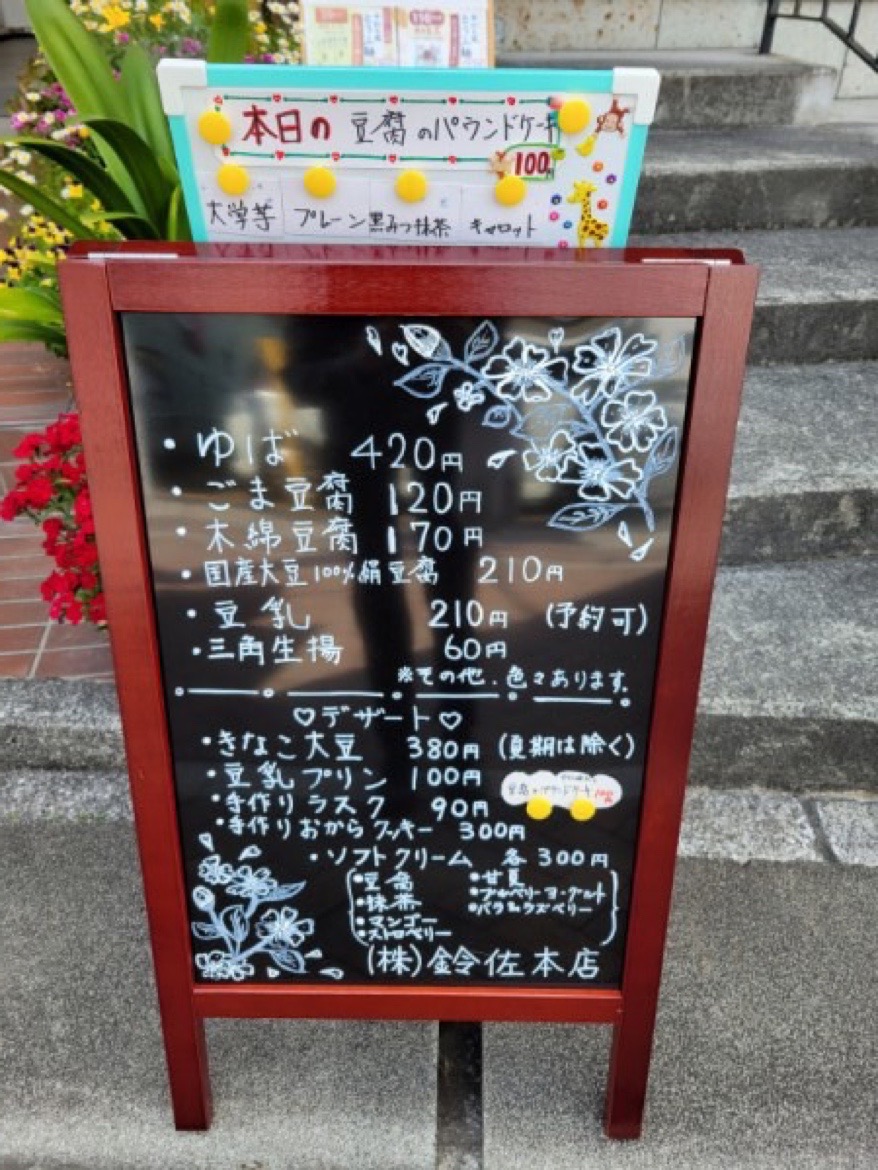 本日の 豆腐のパウンドケーキ
100円
大学芋 プレーン 黒みつ抹茶 キャロット
・ゆば 420円
・ごま豆腐 120円
・木綿豆腐 170円
・国産大豆100%絹豆腐 210円
・豆乳 210円 (予約可)
・三角生揚 60円
※その他、色々あります。
♡デザート♡
・きなこ大豆 380円 (夏期は除く)
・豆乳プリン 100円
・手作りラスク 90円
豆腐のパウンドケーキ 100円
・手作りおからクッキー 300円
・ソフトクリーム 各300円
・豆腐 ・甘夏
・抹茶 ・ブルーベリーヨーグルト
・マンゴー ・バラ&ラズベリー
・ストロベリー
(株)鈴佐本店